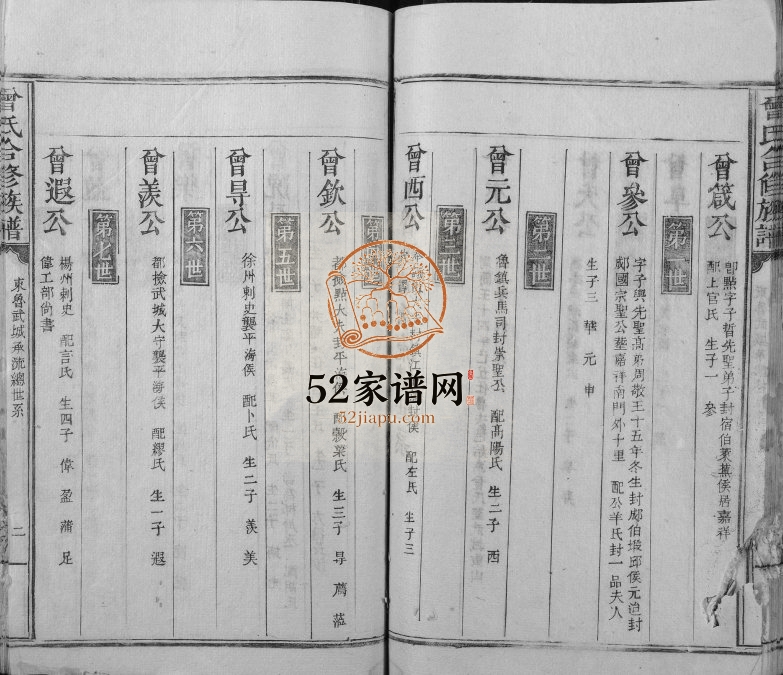 曾氏合修族譜
曾箴公
卽點字子晳先聖弟子封宿伯萊蕪侯居嘉祥
配上官氏 生子一 參
第一世
曾參公
字子輿先聖高弟周敬王十五年冬生封郕伯瑕邱侯元追封
郕國宗聖公墓嘉祥南門外十里 配公羊氏封一品夫人
生子三 華 元 申
第二世
曾元公
魯鎮兵馬司封崇聖公 配高陽氏 生二子 西
第三世
曾西公
封侯 配左氏 生子三
曾欽公
都撿點大夫封平海侯 配穀梁氏 生三子 㝵 薦 蒞
第五世
曾㝵公
徐州刺史襲平海侯 配卜氏 生二子 羨 美
第六世
曾羨公
都撿武城大宰襲平海侯 配繆氏 生一子 遐
第七世
曾遐公
楊州刺史 配言氏 生四子 偉 盈 蒲 足
偉工部尙書
曾氏合修族譜
東魯武城承流總世系
二
52家谱网
52jiapu.com